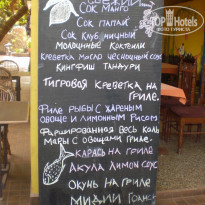 Сок Манго
Сок папаи
Сок клубничный
Молодичные коктейли
Креветка масло чесночный соус
Кингфиш танаури
Тигровая креветка на
гриле.
Филе рыбы с жареным
овощи и лимонным рисом
Фаршированная весь каль
мары с овощами гриле.
Карась на гриле
Акула лимон соус
Окунь на гриле
Мидии
TopHotels
ФОТО ТУРИСТА